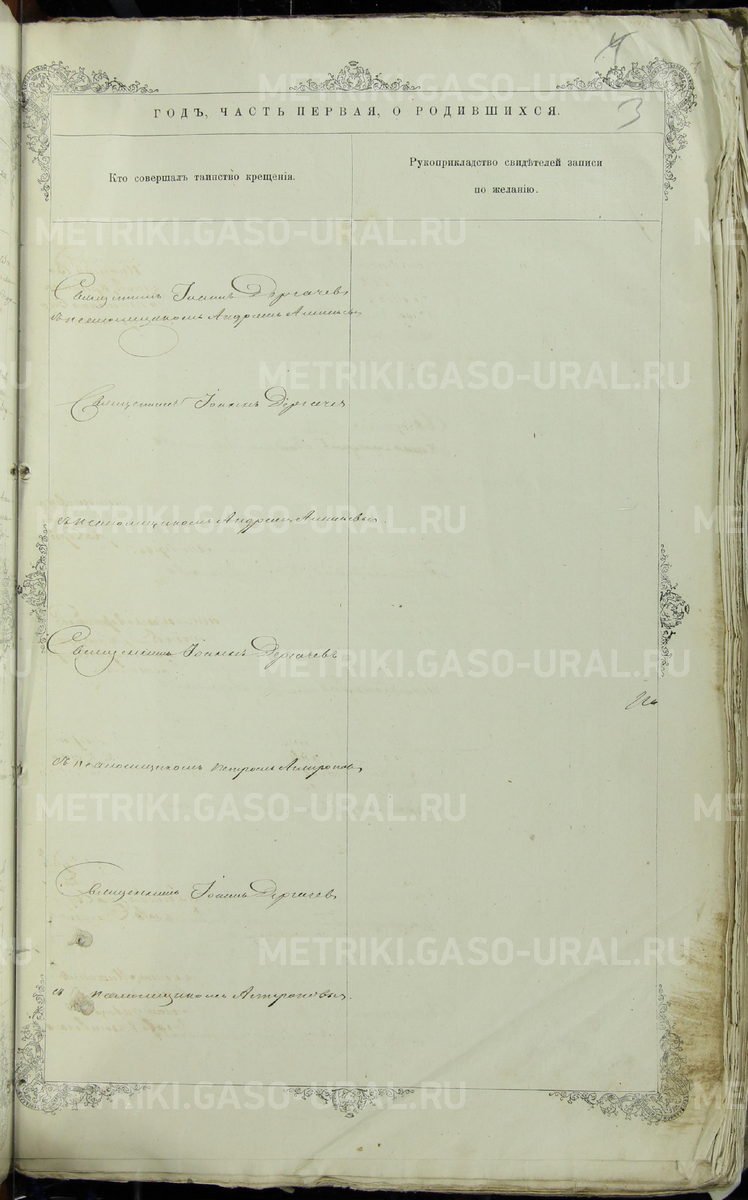 3
ГОДЪ, ЧАСТЬ ПЕРВАЯ, О РОДИВШИХСЯ.
Кто совершалъ таинство крещенія.
Рукоприкладство свидѣтелей записи
по желанію.
Священникъ Іоаннъ Дергачевъ
съ псаломщикомъ Андреемъ
Священникъ Іоаннъ Дергачевъ
съ псаломщикомъ Андреемъ
Священникъ Іоаннъ Дергачевъ
съ псаломщикомъ Петромъ
Священникъ Іоаннъ Дергачевъ
съ псаломщикомъ
METRIKI.GASO-URAL.RU